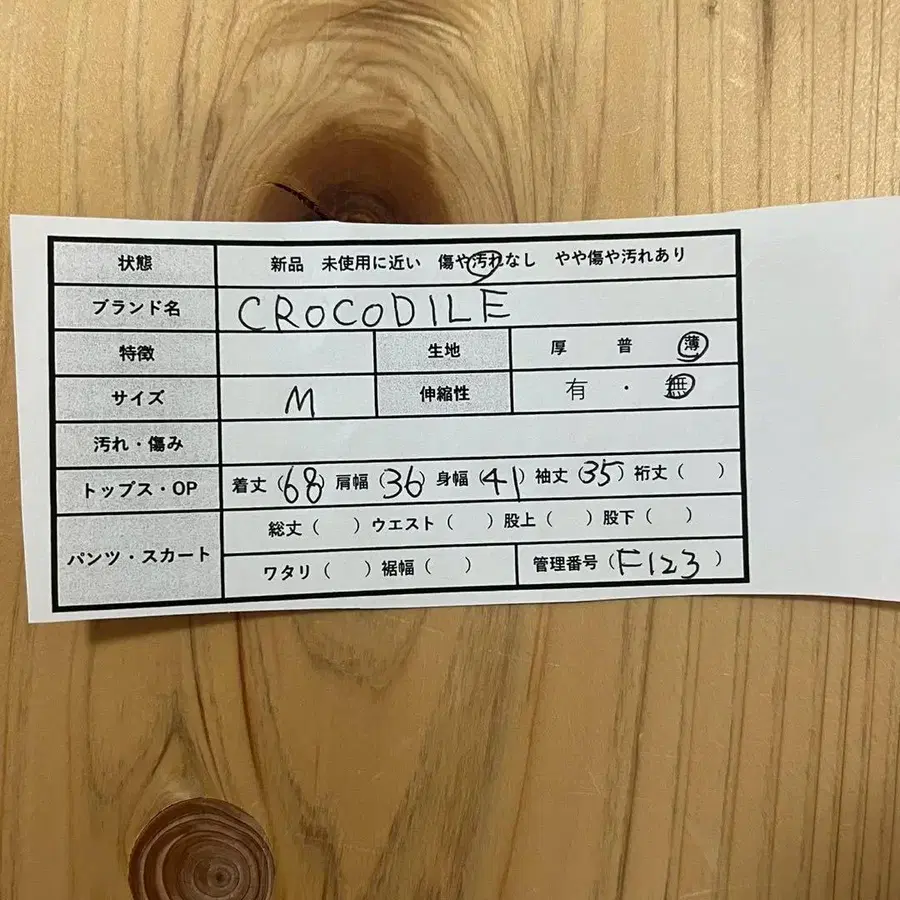 状態 新品 未使用に近い 傷や汚れなし やや傷や汚れあり
ブランド名 CROCODILE
特徴 生地 厚 普 薄
サイズ M 伸縮性 有 ・ 無
汚れ・傷み
トップス・OP 着丈(68) 肩幅(36) 身幅(41) 袖丈(35) 裄丈( )
パンツ・スカート 総丈( ) ウエスト( ) 股上( ) 股下( )
ワタリ( ) 裾幅( ) 管理番号(F123)